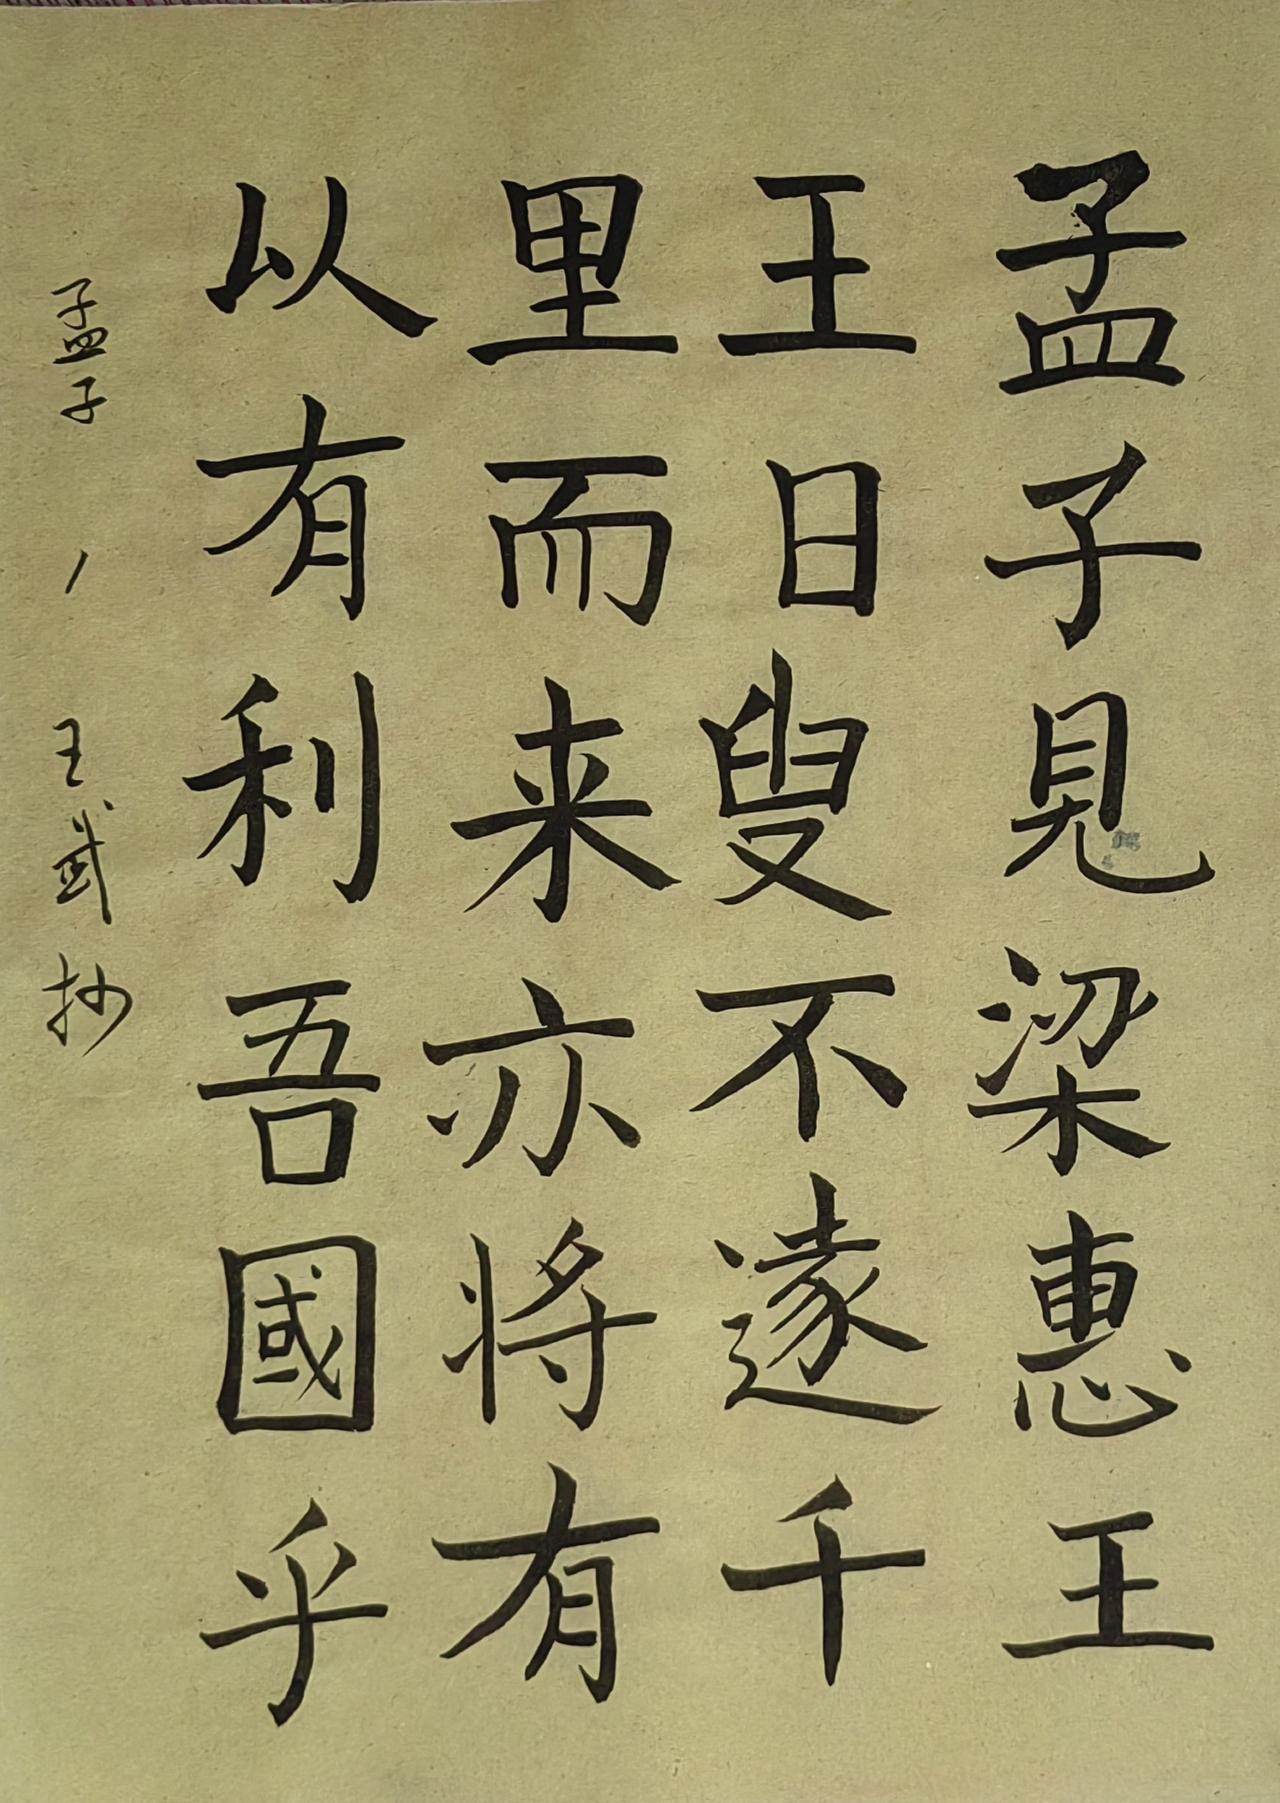 孟子見梁惠王
王日叟不遠千
里而来亦将有
以有利吾國乎
孟子 王武抄